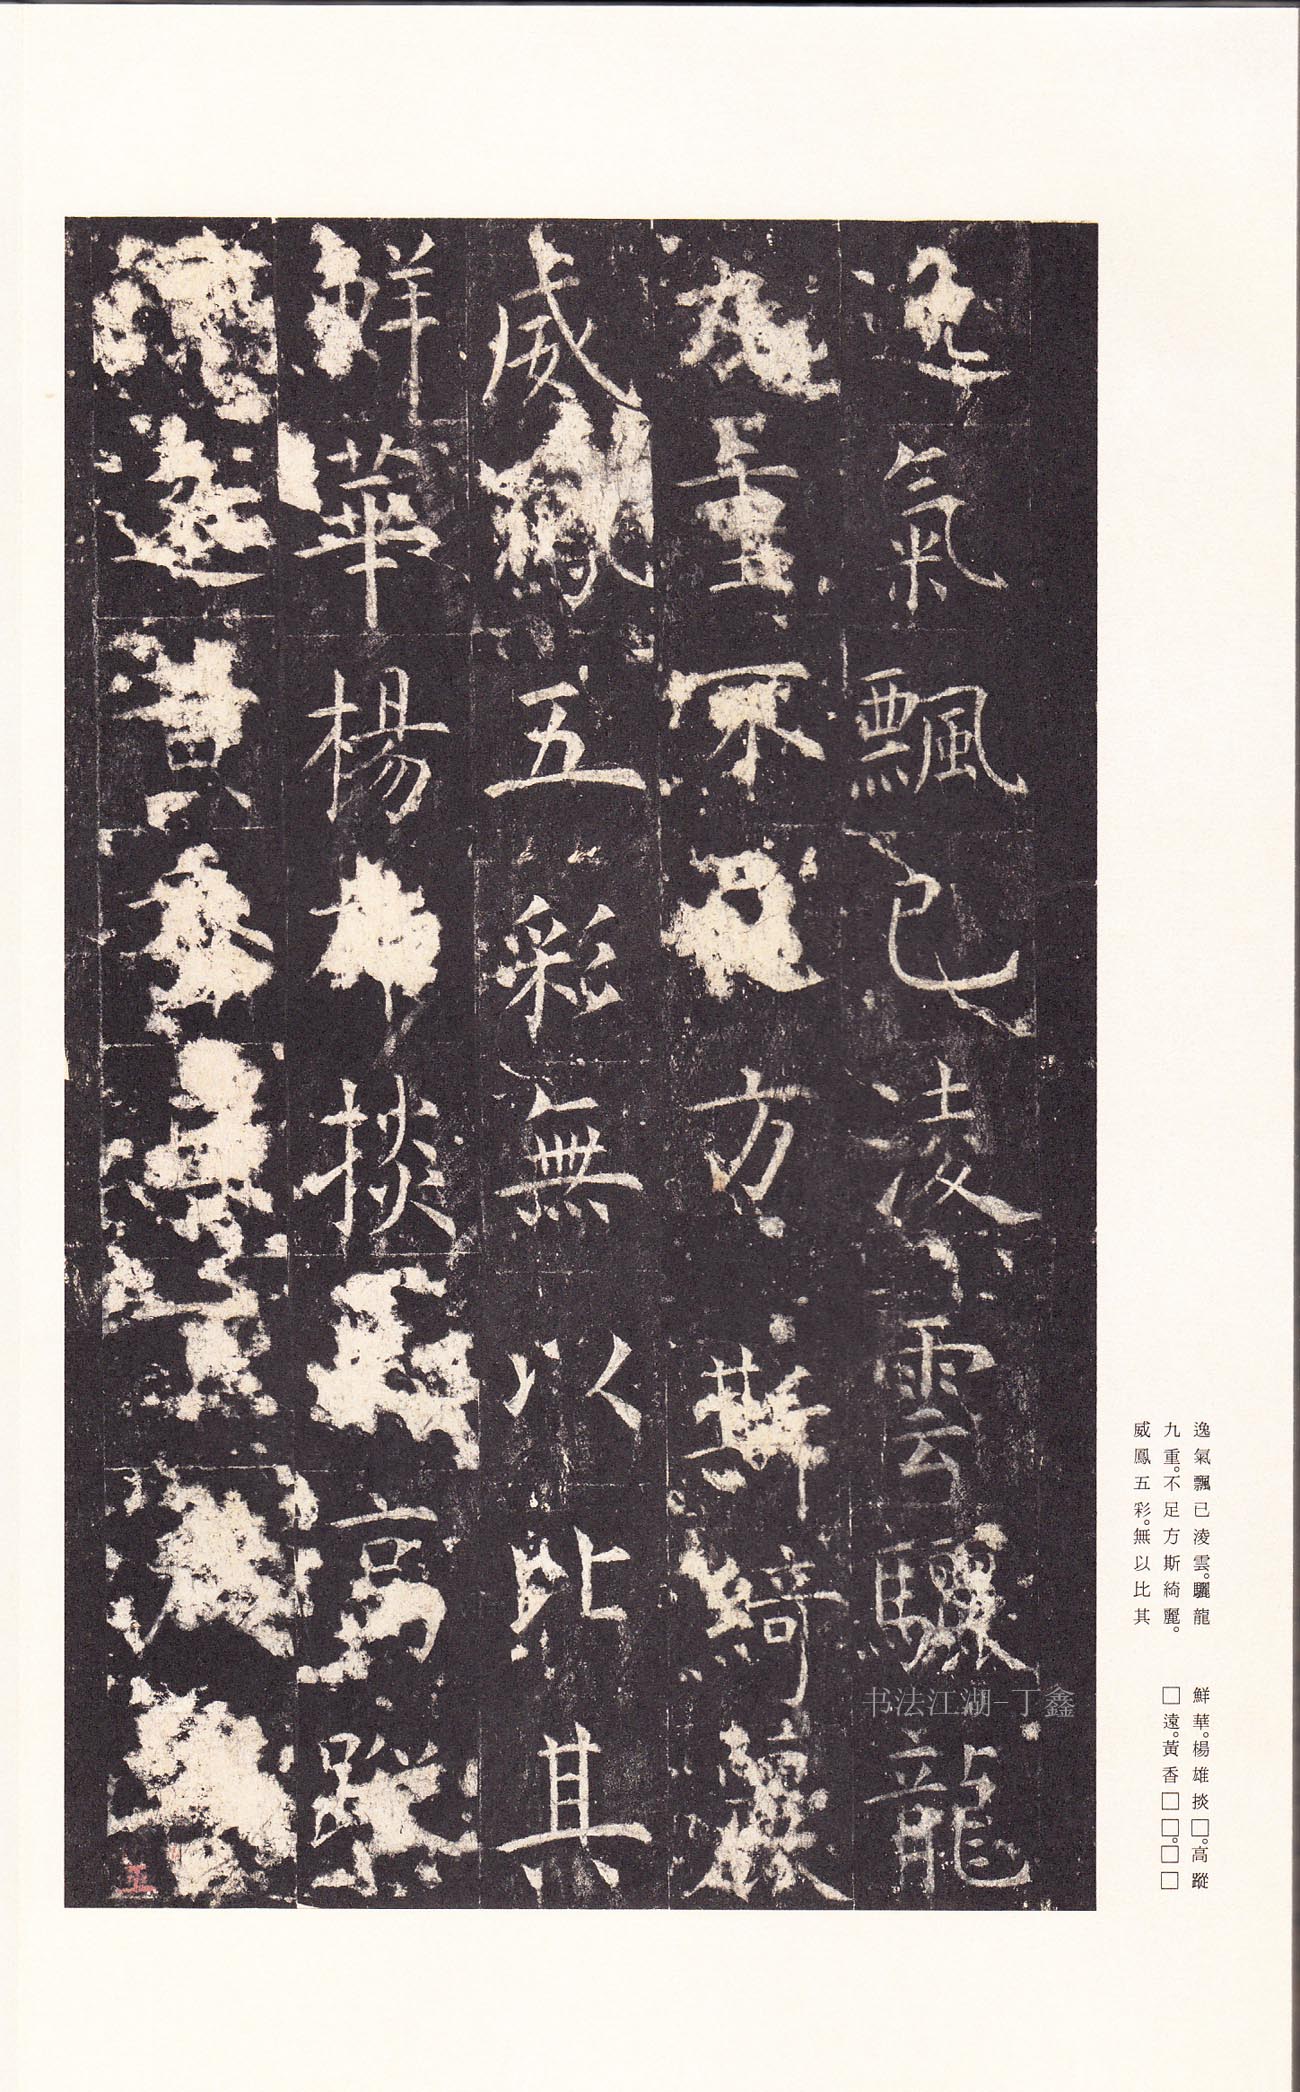 逸氣飄已淩雲驪龍
九重不足方斯綺麗
威鳳五彩無以比其
鮮華楊雄掞高蹤
遠黃香
逸氣飄已淩雲。驪龍
九重。不足方斯綺麗。
威鳳五彩。無以比其
鮮華。楊雄掞□。高蹤
□遠。黃香□□。□□
书法江湖-丁鑫